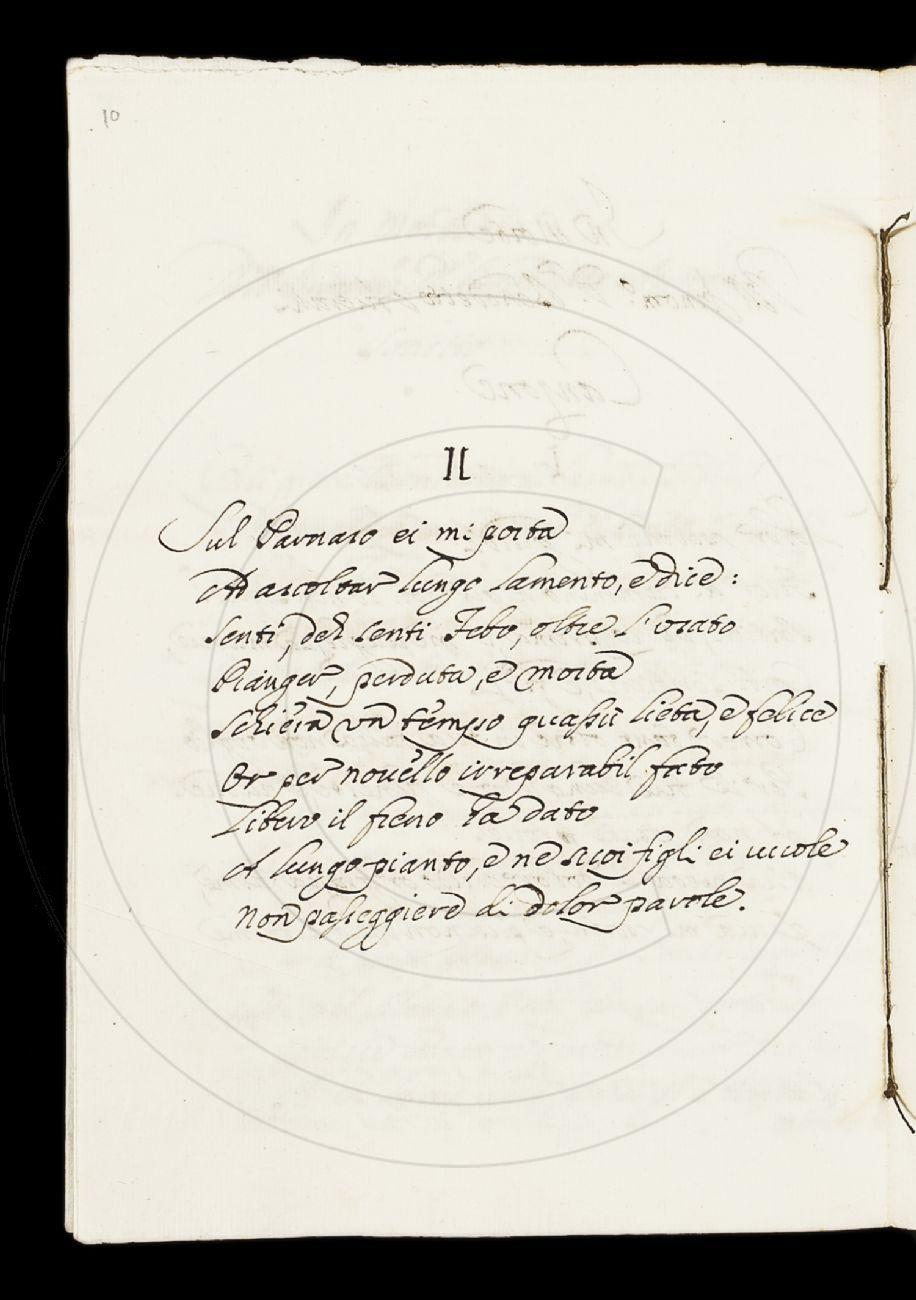 10
II
Sul Parnaso ei mi porta
Ad ascoltar lungo lamento, e dice:
Senti, deh senti Febo, oltre l'usato
Pianger, perduta, e morta
Schiera un tempo quassù lieta, e felice
Or per novello irreparabil fato
Libero il freno ha dato
A lungo pianto, e ne suoi figli ei vuole
Non passeggiere di dolor parole.